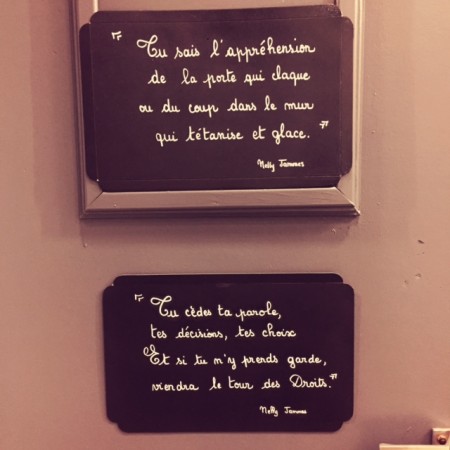 " Tu sais l'appréhension
de la porte qui claque
ou du coup dans le mur
qui tétanise et glace. "
Nelly Jammes
" Tu cèdes ta parole,
tes décisions, tes choix
Et si tu m'y prends garde,
viendra le tour des Droits. "
Nelly Jammes